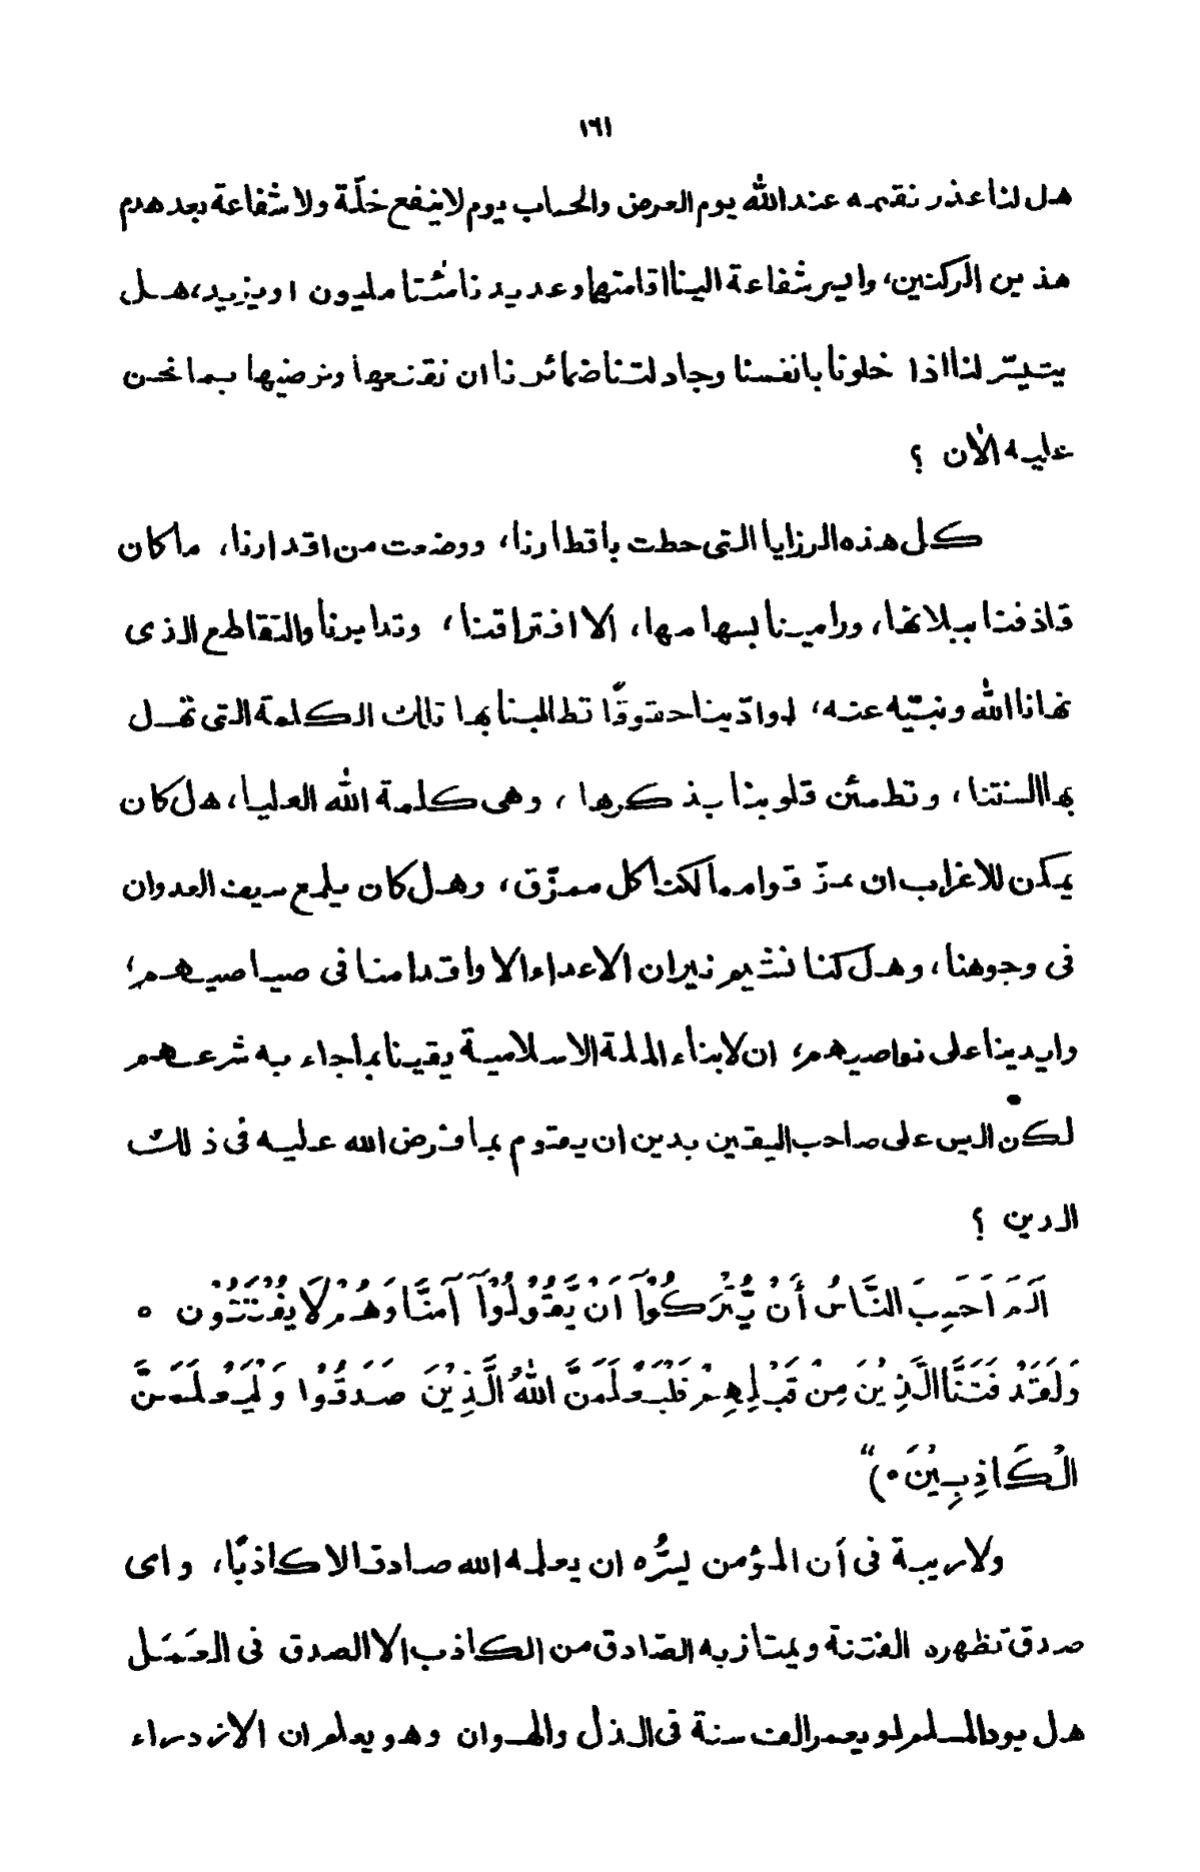 ١٦١
هل لنا عذر نقيمه عند الله يوم العرض والحساب يوم لا ينفع خلّة ولا شفاعة بعد هدم
هذين الركنين، وايسر شفاعة الينا اقامتها وعديدنا مئتا مليون او يزيد، هل
يتيسّر لنا اذا خلونا بانفسنا وجادلتنا ضمائرنا ان نقنعها ونرضيها بما نحن
عليه الآن ؟
كل هذه الرزايا التى حطت باقطارنا، ووضعت من اقدارنا، ما كان
قاذفنا ببلائها، ورامينا بسهامها، الا افتراقنا، وتدابرنا والتقاطع الذى
نهانا الله ونبيّه عنه، لو ادّينا حقوقًا تطالبنا بها تلك الكلمة التى تهل
بها السنتنا، وتطمئن قلوبنا بذكرها، وهى كلمة الله العليا، هل كان
يمكن للاغراب ان يمزّقوا ممالكنا كل ممزّق، وهل كان يلمع سيف العدوان
فى وجوهنا، وهل كنا نشيم نيران الاعداء الا واقدامنا فى صياصيهم،
وايدينا على نواصيهم، ان لابناء الملة الاسلامية يقينا بما جاء به شرعهم
لكن اليس على صاحب اليقين بدين ان يقوم بما فرض الله عليه فى ذلك
الدين ؟
اَلٓمٓ اَحَسِبَ النَّاسُ أَنْ يُّتْرَكُوْٓا اَنْ يَّقُوْلُوْٓا آمَنَّا وَهُمْ لَا يُفْتَنُوْن ○
وَلَقَدْ فَتَنَّا الَّذِيْنَ مِنْ قَبْلِهِمْ فَلَيَعْلَمَنَّ اللهُ الَّذِيْنَ صَدَقُوْا وَلَيَعْلَمَنَّ
الْكَاذِبِيْنَ ○)"
ولا ريبة فى أن المؤمن يسُّره ان يعلمه الله صادقا لا كاذبًا، واى
صدق تظهره الفتنة ويمتاز به الصّادق من الكاذب الا الصدق فى العَمَل
هل يود المسلم لو يعمر الف سنة فى الذل والهوان وهو يعلم ان الازدراء